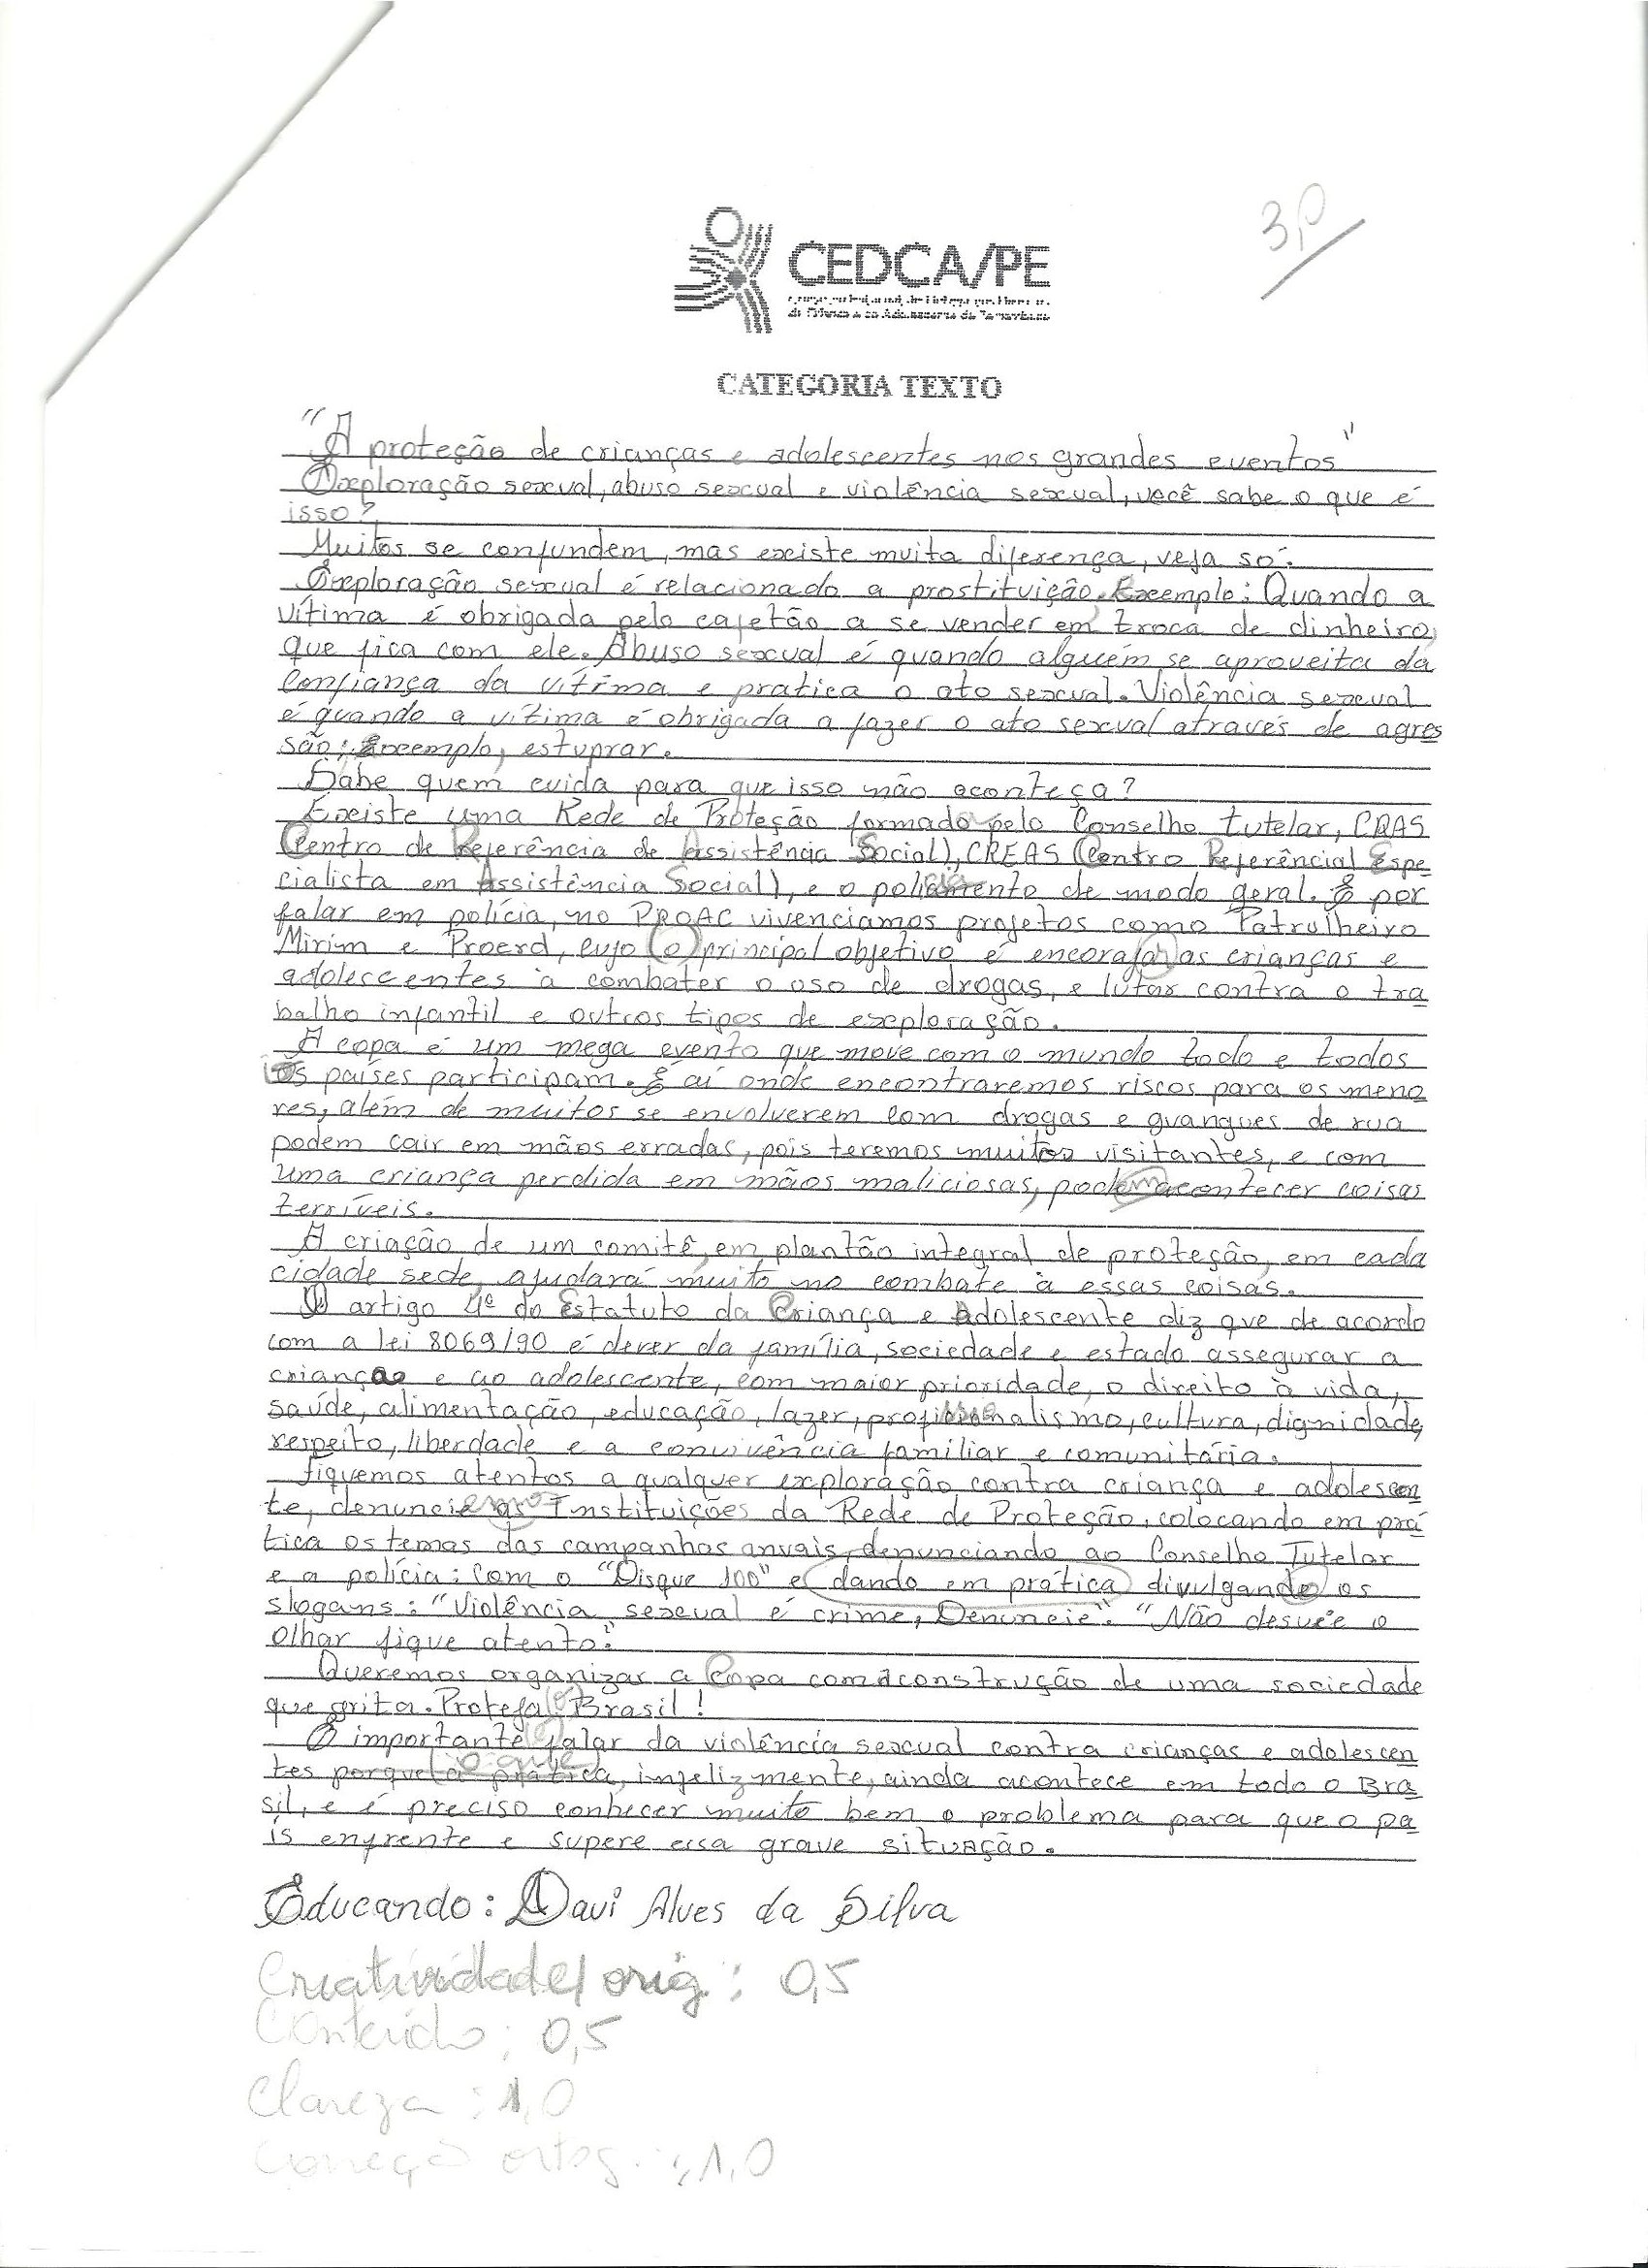 3,0
CEDCA/PE
CATEGORIA TEXTO
"A proteção de crianças e adolescentes nos grandes eventos"
Exploração sexual, abuso sexual e violência sexual, você sabe o que é
isso?
Muitos se confundem, mas existe muita diferença, veja só:
Exploração sexual é relacionado a prostituição. Exemplo: Quando a
vítima é obrigada pelo cafetão a se vender em troca de dinheiro,
que fica com ele. Abuso sexual é quando alguém se aproveita da
confiança da vítima e pratica o ato sexual. Violência sexual
é quando a vítima é obrigada a fazer o ato sexual através de agres
são; Exemplo, estuprar.
Sabe quem cuida para que isso não aconteça?
Existe uma Rede de Proteção formada pelo Conselho tutelar, CRAS
(Centro de Referência de Assistência Social), CREAS (Centro Referêncial Espe
cialista em Assistência Social), e o policiamento de modo geral. E por
falar em polícia, no PROAC vivenciamos projetos como Patrulheiro
Mirim e Proerd, cujo (o) principal objetivo é encorajar as crianças e
adolescentes à combater o uso de drogas, e lutar contra o tra
balho infantil e outros tipos de exploração.
A copa é um mega evento que move com o mundo todo e todos
os países participam. E aí onde encontraremos riscos para os meno
res, além de muitos se envolverem com drogas e guangues de rua
podem cair em mãos erradas, pois teremos muitos visitantes, e com
uma criança perdida em mãos maliciosas, podem acontecer coisas
terríveis.
A criação de um comitê, em plantão integral de proteção, em cada
cidade sede, ajudará muito no combate à essas coisas.
O artigo 4º do Estatuto da Criança e Adolescente diz que de acordo
com a lei 8069/90 é dever da família, sociedade e estado assegurar a
criança e ao adolescente, com maior prioridade, o direito à vida,
saúde, alimentação, educação, lazer, profissionalismo, cultura, dignidade,
respeito, liberdade e a convivência familiar e comunitária.
fiquemos atentos a qualquer exploração contra criança e adolescen
te, denuncie as Instituições da Rede de Proteção, colocando em prá
tica os temas das campanhas anuais, denunciando ao Conselho Tutelar
e a polícia: Com o "Disque 100" e (dando em prática) divulgando os
slogans: "Violência sexual é crime, Denuncie". "Não desvie o
olhar fique atento."
Queremos organizar a Copa com a construção de uma sociedade
que grita. Proteja o Brasil!
É importante falar da violência sexual contra crianças e adolescen
tes porque a prática, infelizmente, ainda acontece em todo o Bra
sil, e é preciso conhecer muito bem o problema para que o pa
ís enfrente e supere essa grave situação.
Educando: Davi Alves da Silva
Criatividade/orig.: 0,5
Conteúdo: 0,5
Clareza: 1,0
Correção ortog.: 1,0